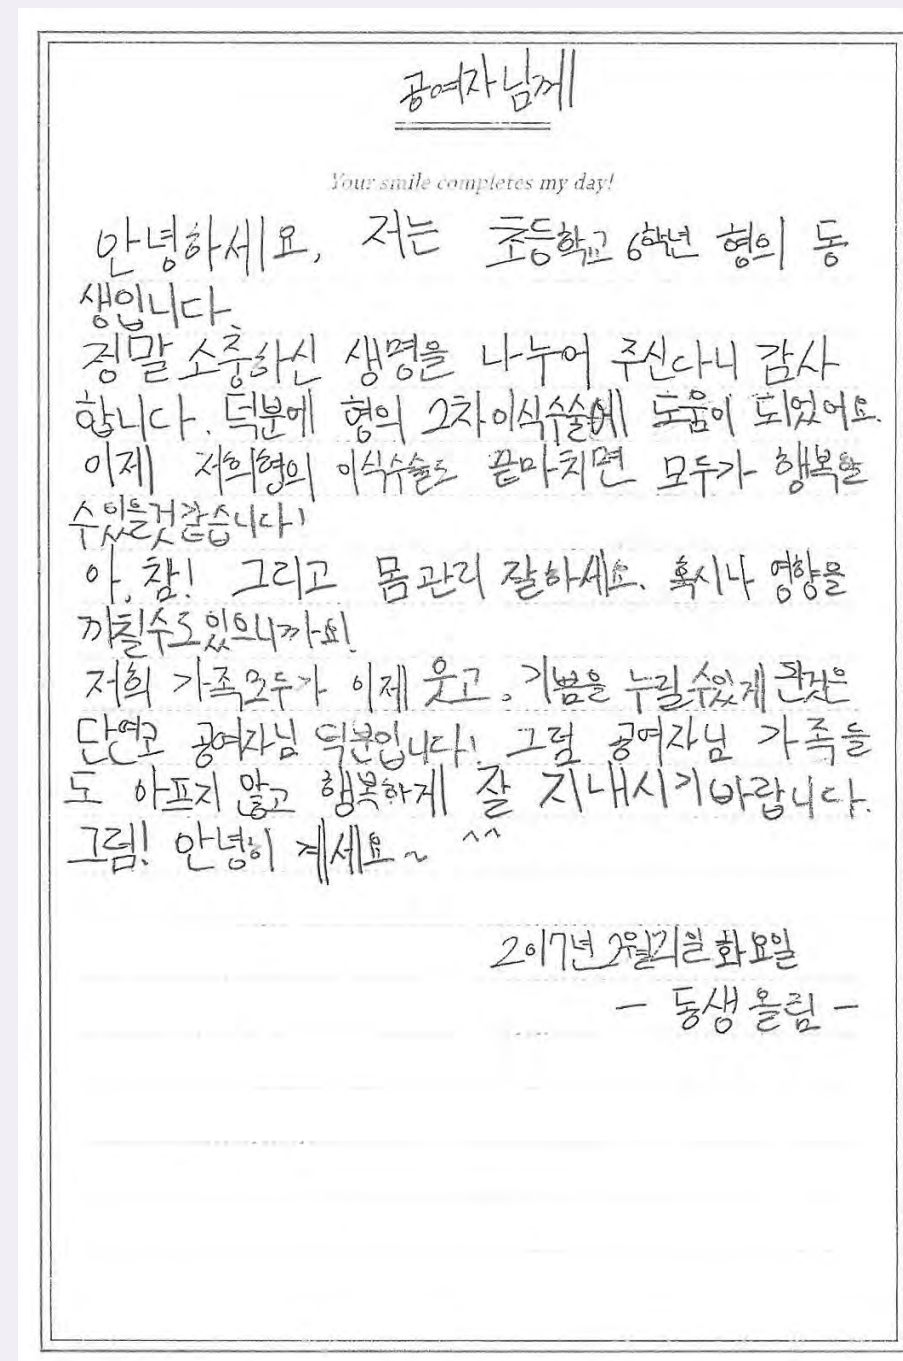 공여자님께
Your smile completes my day!
안녕하세요, 저는 초등학교 6학년 형의 동
생입니다.
정말 소중하신 생명을 나누어 주신다니 감사
합니다. 덕분에 형의 2차이식수술에 도움이 되었어요.
이제 저희형의 이식수술도 끝마치면 모두가 행복할
수있을것같습니다!
아, 참! 그리고 몸관리 잘하세요. 혹시나 영향을
끼칠수도있으니까요!
저희 가족모두가 이제 웃고, 기쁨을 누릴수있게 된것은
단연코 공여자님 덕분입니다! 그럼 공여자님 가족들
도 아프지 않고 행복하게 잘 지내시기바랍니다.
그럼! 안녕히 계세요~ ^^
2017년 2월21일 화요일
- 동생 올림 -